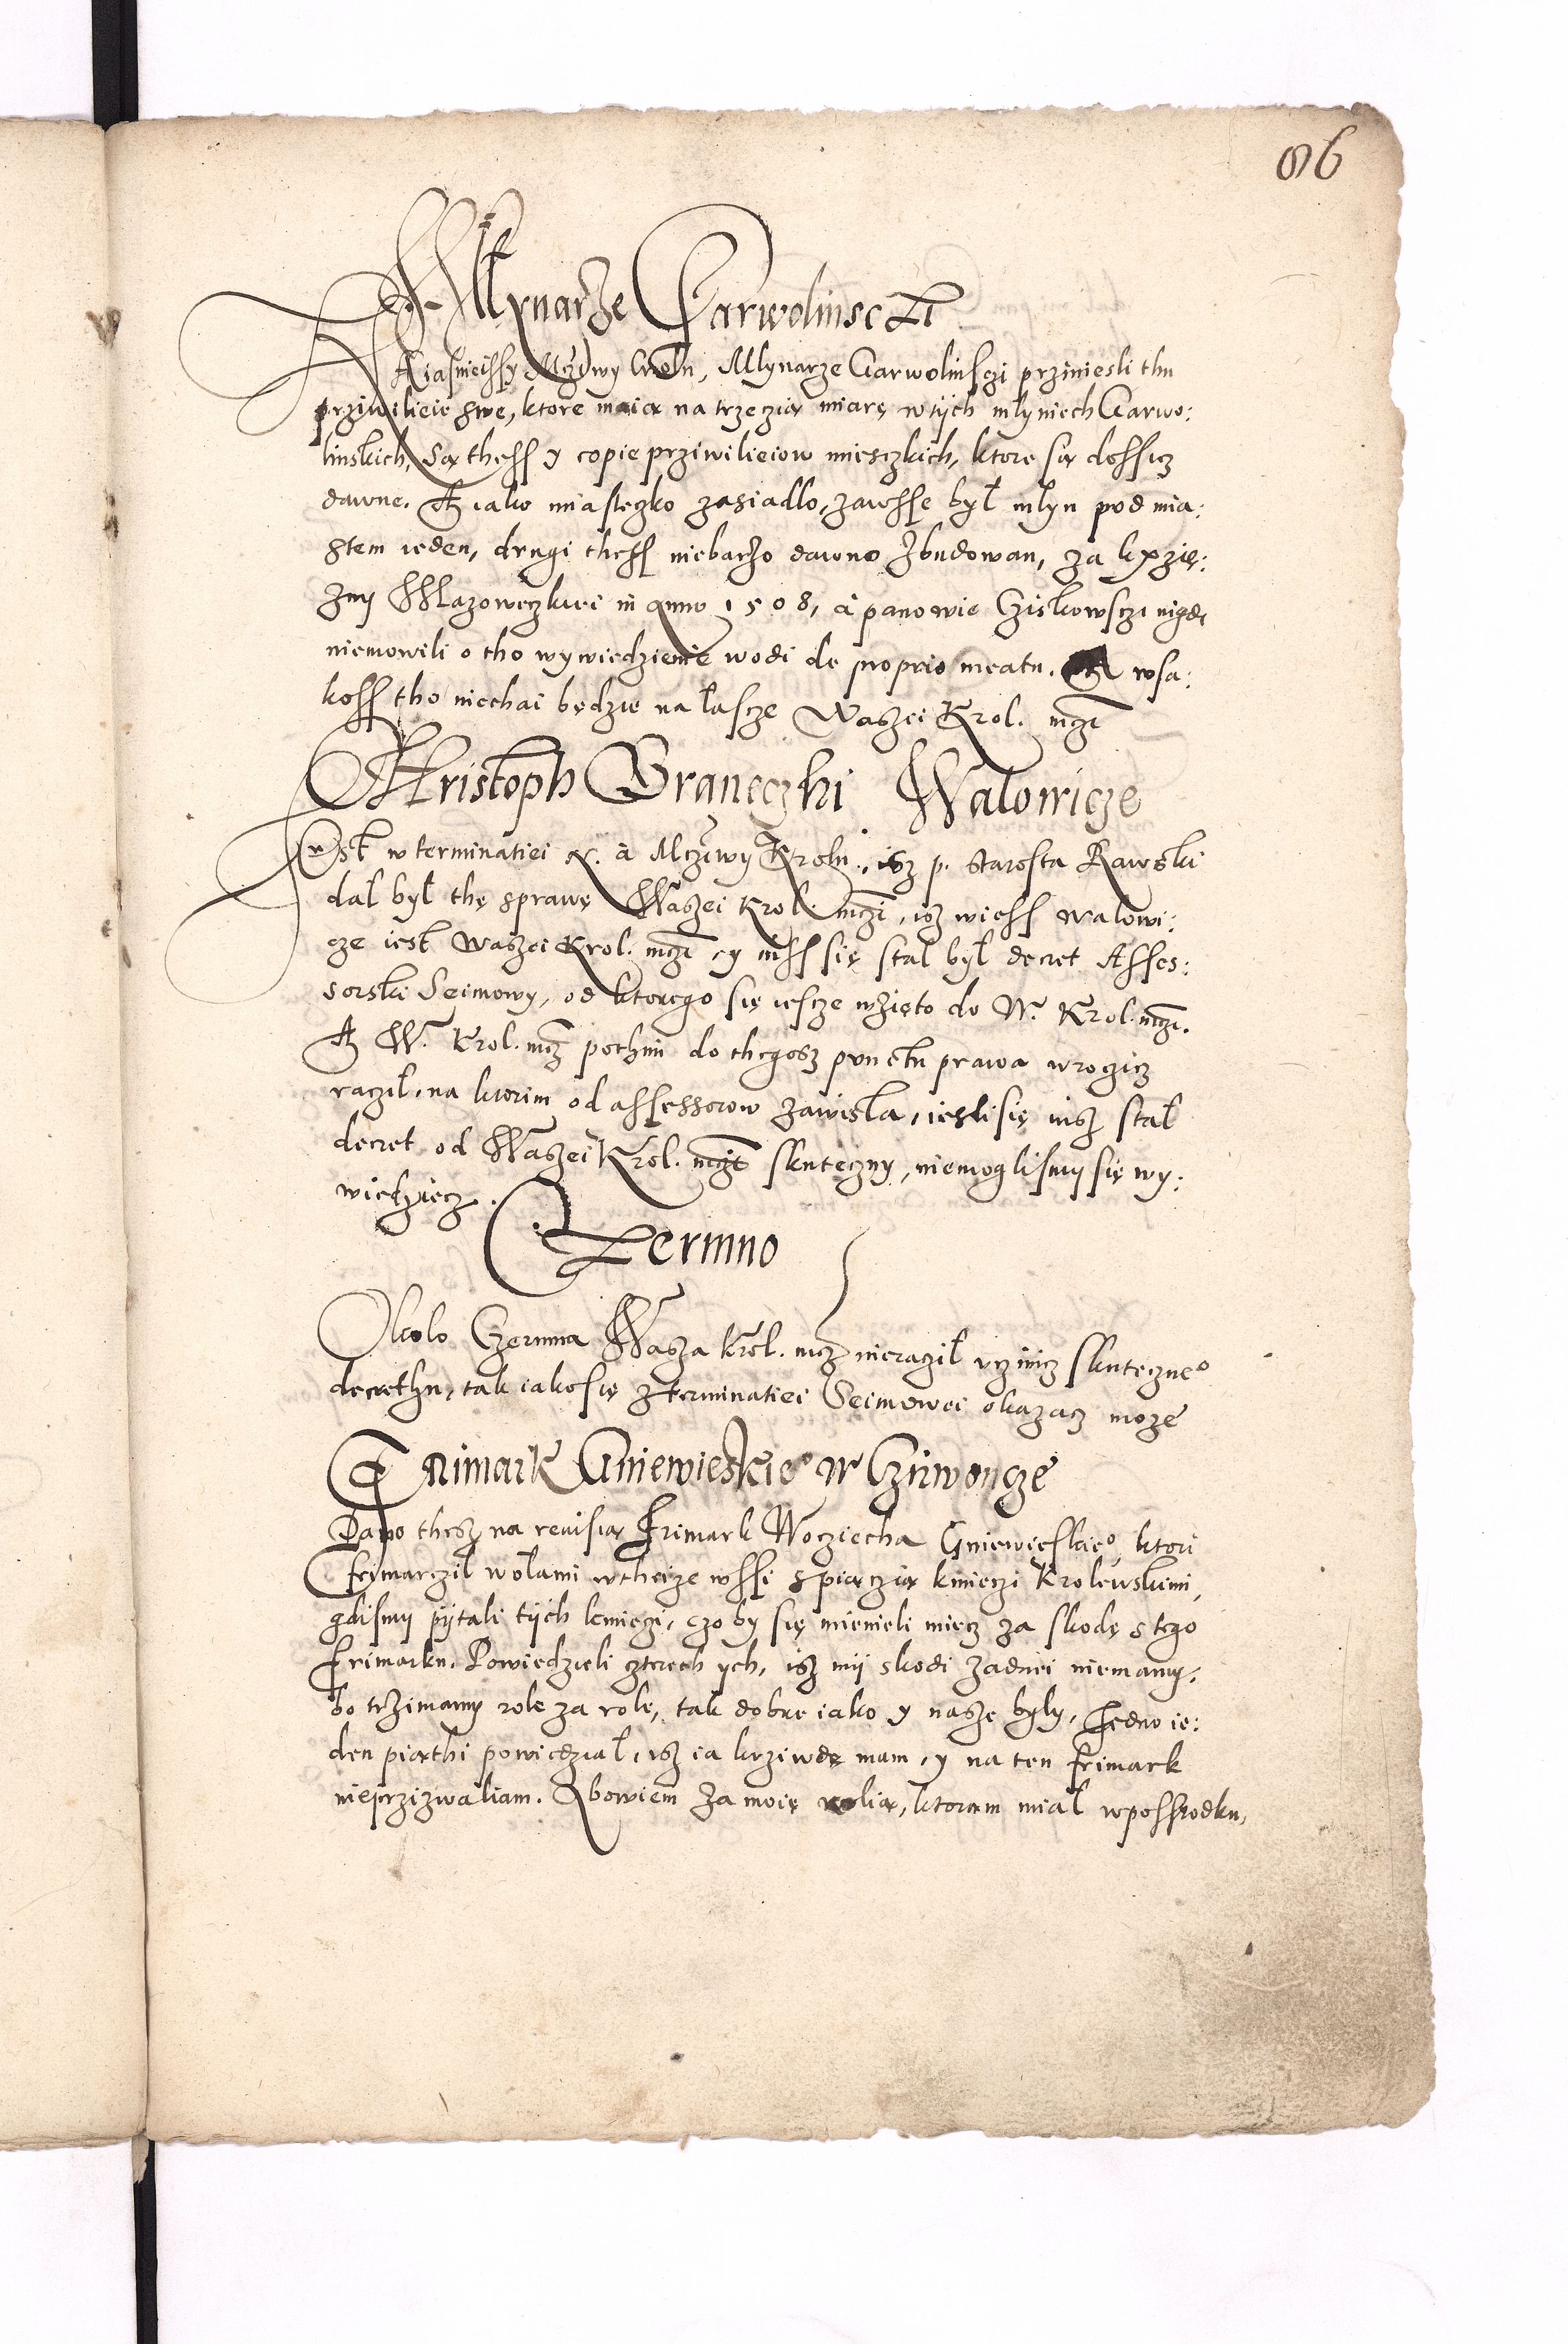 86
Mlynarze Garwolinscži
Naiasnieissy Mczwy Krolu, Mlynarze Garwolinsczi prziniesli thu
prziwilieie swe, ktore maią na trzeczią miarę w tÿch mlyniech Garwo:
linskich, Są thess y copie prziwilieiow miesczkich, ktore są dossicz
dawne. A iako miasteczko zasiadlo, zawsse był mlyn pod mia:
stem ieden, drugi thess niebarzo dawno zbudowan, za kxzię:
zny Mazoweczkiei in anno 1508, à panowie Cziskowsczi nigdi
niemowili o tho wywiedzienie wodi de proprio meatu. A wsa:
koss tho niechai będzie na lascze Waszei Krol. mczi
Khristoph Graneczki Walowicze
Jest w terminatiei &. à Mcziwy Krolu, isz p. starosta Rawski
dal był thę sprawę Waszei Krol. mczi, isz wiess Walowi:
cze iest Waszei Krol. mczi, y inss się stal był decret Asses:
sorski Seimowy, od ktorego się iescze wzięto do W. Krol. mczi.
A W. Krol. mcz pothim do thegosz punctu prawa wrocicz
raczil, na ktorim od assessorow zawisla, iesli się insz stał
decret od Waszei Krol. mczi skuteczny, niemoglismy się wy:
wiedziecz.
Czermno
Okolo Czermna Wasza Krol. mcz nieraczil uczinicz skuteczne°
decrethu, tak iako się z terminatiei Seimowei okazacz może
Frimark Gniewieskie° w Czirwoncze
Dano thesz na reuisią Frimark Wocziecha Gniewieskie°, ktori
frimarczil wolami w theize wssi s piączią kmieczi Krolewskimi,
gdismy pÿtali tÿch kmieczi, czo by się mienieli miecz za skodę s tego
frimarku. Powiedzieli czterech ych, isz mÿ skodi zadnei niemamy,
bo trzimamy role za role, tak dobre iako y nasze byly, Jedno ie:
den piąthi powiedzial, isz ia krziwdę mam, y na ten frimark
nieprzizwaliam. Abowiem za moię rolią, ktoram mial w possrodku,